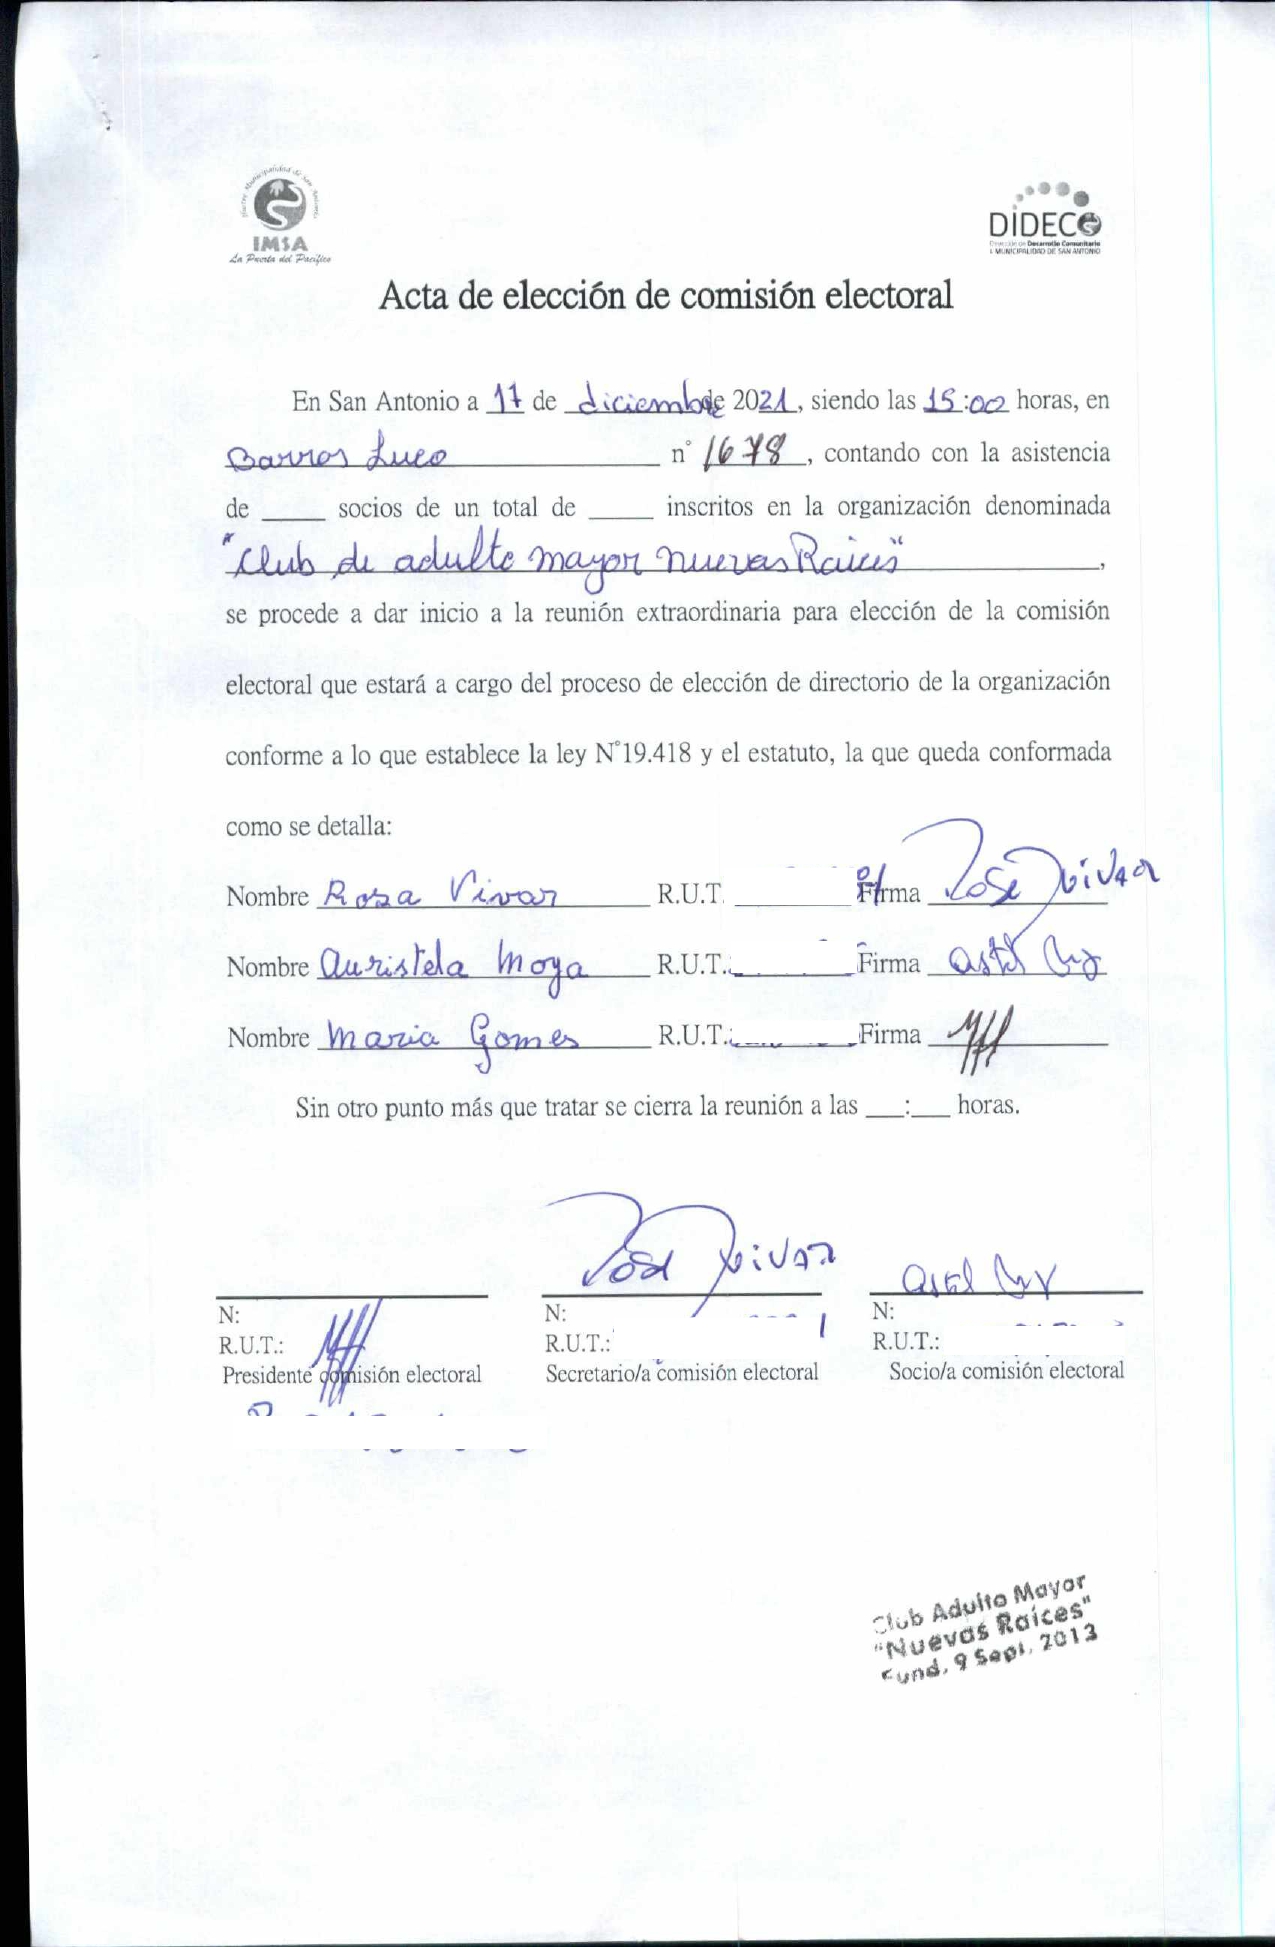 Ilustre Municipalidad de San Antonio
IMSA
La Puerta del Pacífico
DIDECO
Dirección de Desarrollo Comunitario
I. MUNICIPALIDAD DE SAN ANTONIO
Acta de elección de comisión electoral
En San Antonio a 17 de diciembre de 2021, siendo las 15:00 horas, en
Barros Luco n° 1678, contando con la asistencia
de ____ socios de un total de ____ inscritos en la organización denominada
"Club de adulto mayor nuevas Raices",
se procede a dar inicio a la reunión extraordinaria para elección de la comisión
electoral que estará a cargo del proceso de elección de directorio de la organización
conforme a lo que establece la ley N°19.418 y el estatuto, la que queda conformada
como se detalla:
Nombre Rosa Vivar R.U.T. Firma
Nombre Auristela Moya R.U.T.: Firma
Nombre Maria Gomes R.U.T.: Firma
Sin otro punto más que tratar se cierra la reunión a las ___:___ horas.
N: N: N:
R.U.T.: R.U.T.: R.U.T.:
Presidente comisión electoral Secretario/a comisión electoral Socio/a comisión electoral
Club Adulto Mayor
"Nuevas Raíces"
Fund. 9 Sept. 2013